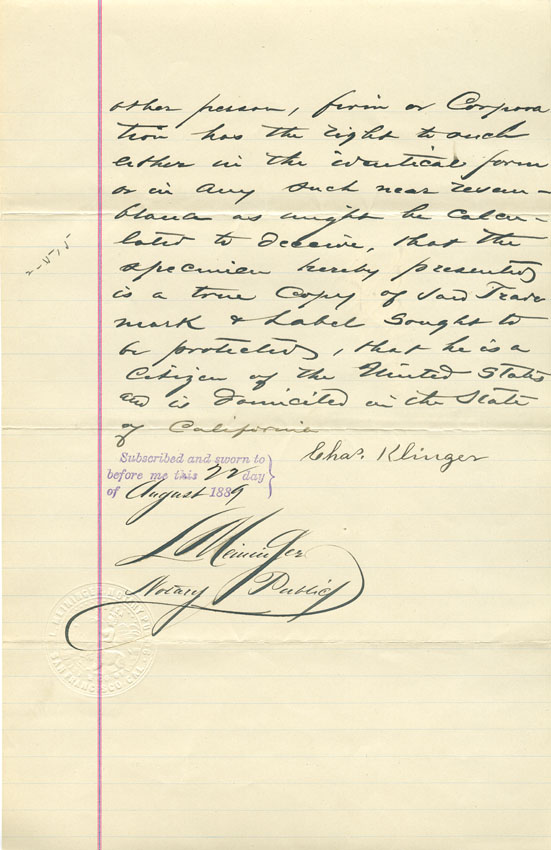 other person, firm or Corpora
tion has the right to such
either in the identical form
or in any such near resem-
blance as might be calcu-
lated to deceive, that the
specimen hereby presented
is a true Copy of said Trade
mark & Label Sought to
be protected, that he is a
Citizen of the United States
and is domiciled in the State
of California
Chas. Klinger
Subscribed and sworn to
before me this 22 day
of August 1889
L Meininger
Notary Public
SAN FRANCISCO CAL